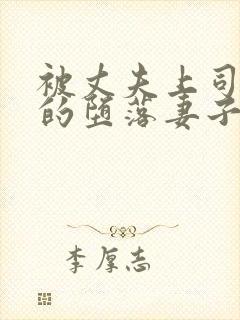 被丈夫上司
的堕落妻子
李厚志